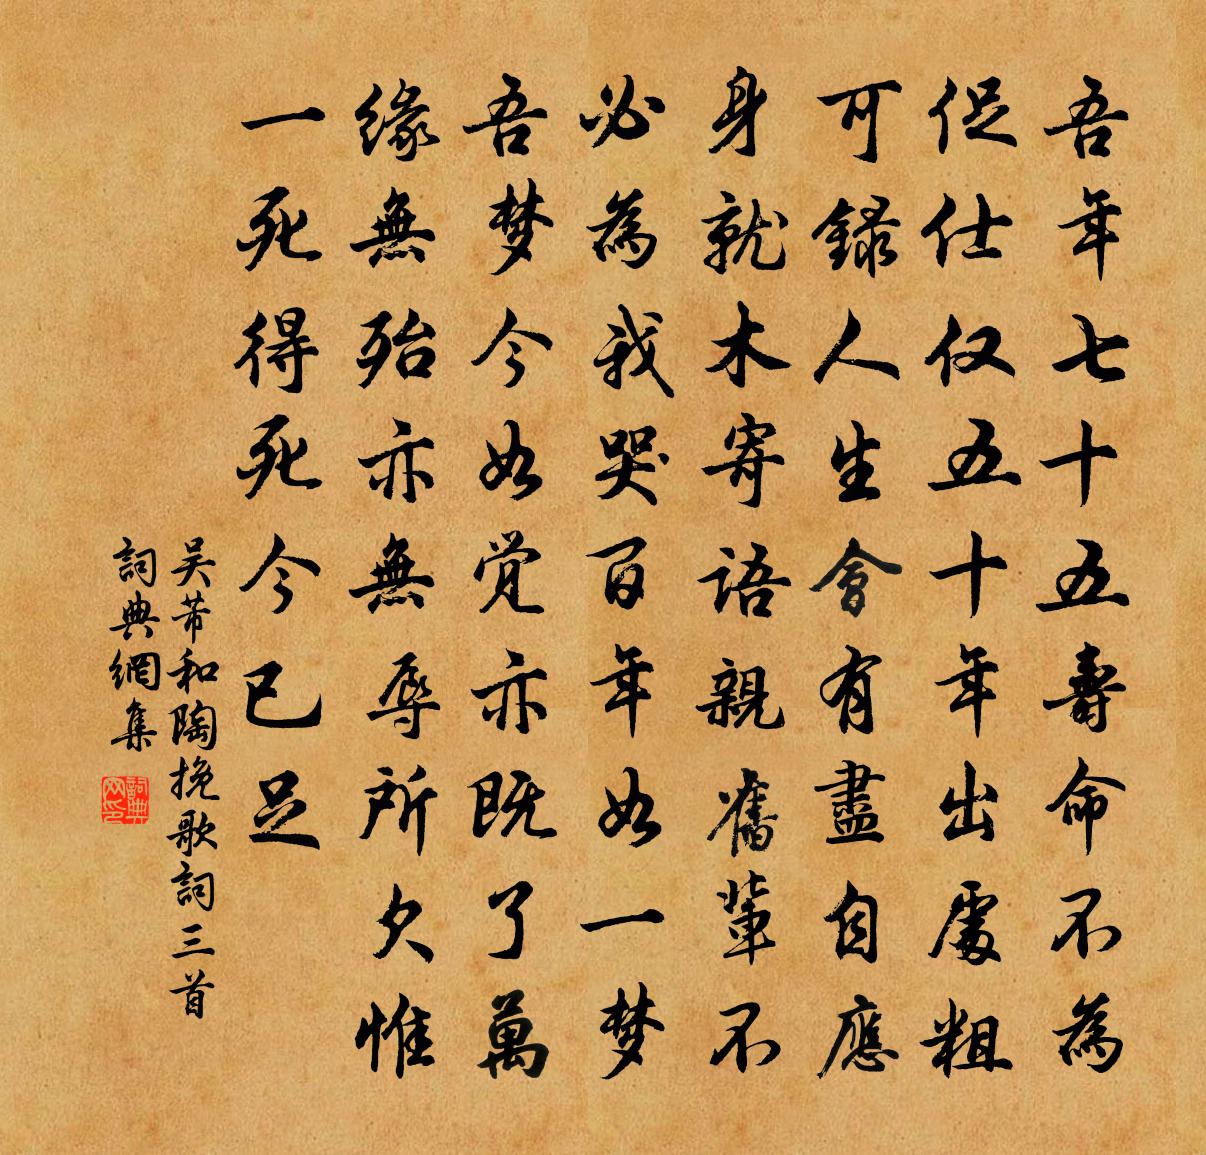 吾年七十五壽命不為
促仕仅五十年出處粗
可録人生會有盡自應
身就木寄語親舊輩不
必為我哭百年如一梦
吾梦今如觉亦既了萬
緣無殆亦無辱所欠惟
一死得死今已足
吴芾和陶挽歌詞三首
詞典網集
詞典网印